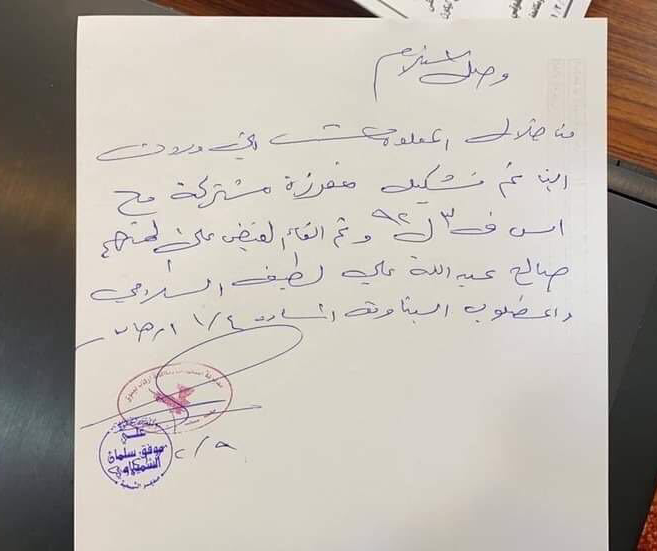 وصل استلام
من خلال المعلومات التي وردت
الينا تم تشكيل مفرزة مشتركة مع
امن ف٣ ل٩٢ وتم القاء القبض على المتهم
صالح عبد الله علي لطيف السلامي
والمطلوب المادة ٤/١ ارهاب
علي
موفق سلمان
مدير الشعبة
٢/٩